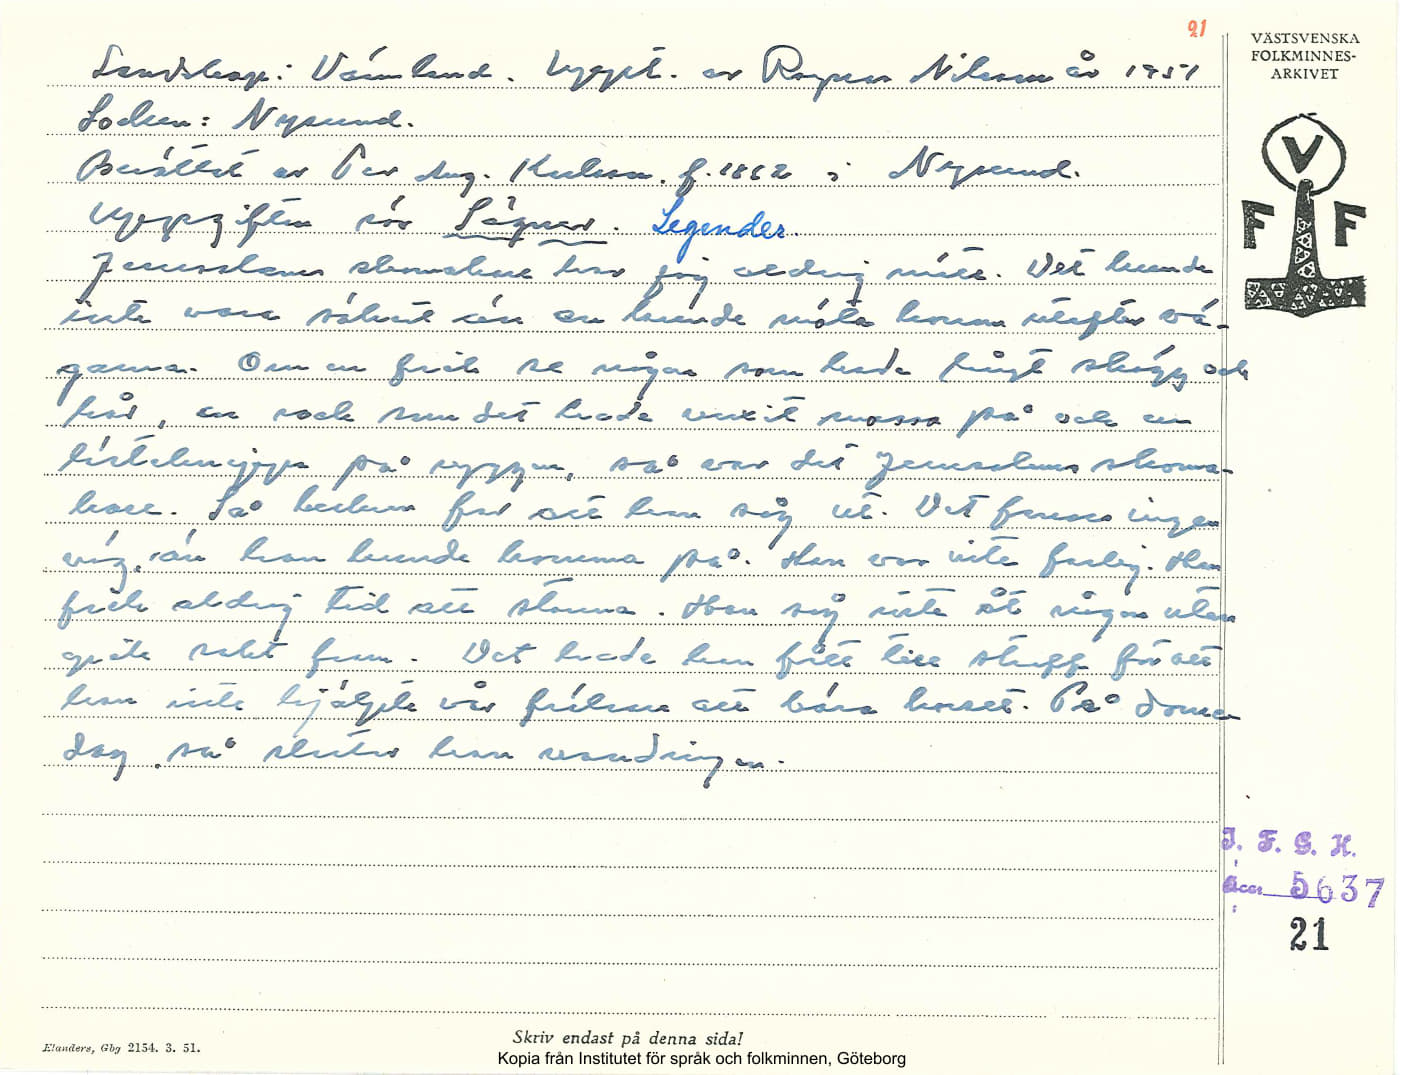 21
VÄSTSVENSKA
FOLKMINNES-
ARKIVET
V
F F
Landskap: Värmland. Uppt. av Ragnar Nilsson år 1951
Socken: Nysund.
Berättat av Per Aug. f. 1862 i Nysund.
Uppgiften rör Sägner. Legender.
Jerusalems skomakare har jag aldrig mött. Det kunde
inte vara säkert än en kunde möta honom utefter vä-
garna. Om en fick se någon som hade långt skägg och
hår, en rock som det hade växit mossa på och en
på ryggen, så var det Jerusalems skoma-
kare. Så kallna för att han såg ut. Det fanns ingen
väg, än han kunde komma på. Han var inte farlig. Han
fick aldrig tid att stanna. Han såg inte åt någon utan
gick rakt fram. Det hade han fått till straff för att
han inte hjälpte vår frälsare att bära korset. På domen
dag, så slutar han vandringen.
I. F. G. H.
Acc. 5637
21
Skriv endast på denna sida!
Elanders, Gbg 2154. 3. 51.
Kopia från Institutet för språk och folkminnen, Göteborg